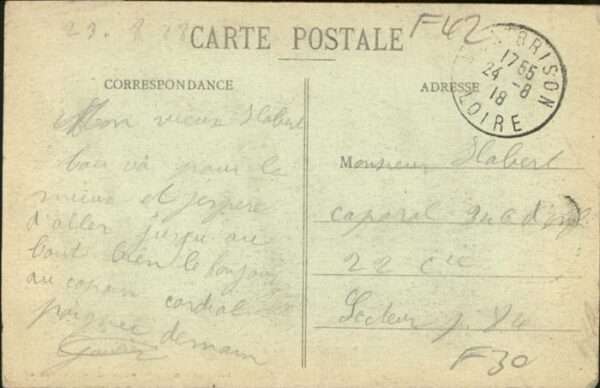 23.8.18
F42
CARTE POSTALE
BRISON
1765
24-8
18
LOIRE
CORRESPONDANCE
ADRESSE
Mon vieux Habert
bon va pour le
mieux et j'espere
d'aller jusqu au
bout bien le bonjour
au copain cordial
poignee de main
Monsieur Habert
caporal
22 Cie
Secteur p. 84
F30